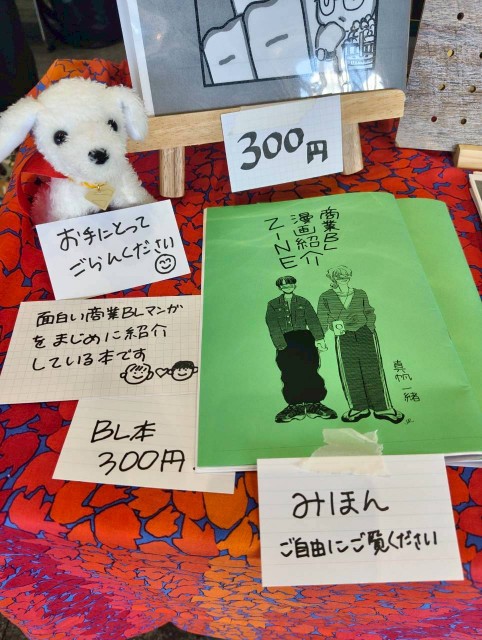 300円
お手にとって
ごらんください
商業BL
漫画紹介
ZINE
面白い商業BLマンガ
をまじめに紹介
している本です
真帆一緒
BL本
300円
みほん
ご自由にご覧ください